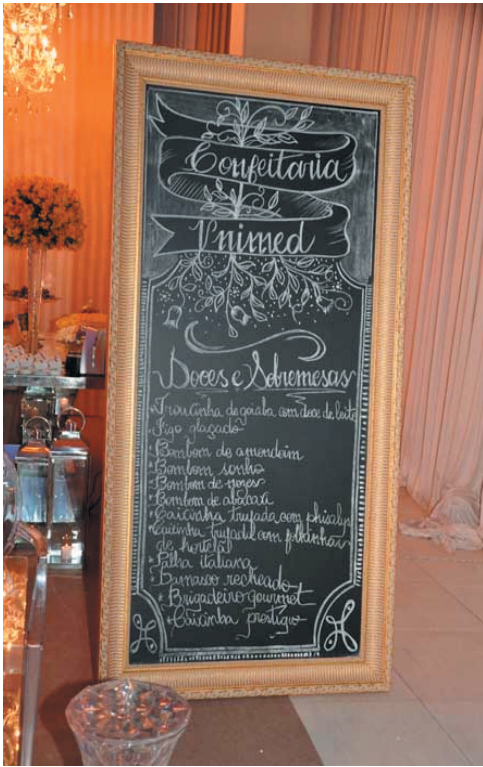 Confeitaria
Unimed
Doces e Sobremesas
Trouxinha de goiaba com doce de leite
* Figo glaçado
* Bombom de amendoim
* Bombom sonho
* Bombom de nozes
* Bombom de abacaxi
* Caixinha trufada com phisalys
* Caixinha trufada com folhinhas
de hortelã
* Palha italiana
* Damasco recheado
* Brigadeiro gourmet
* Caixinha prestígio